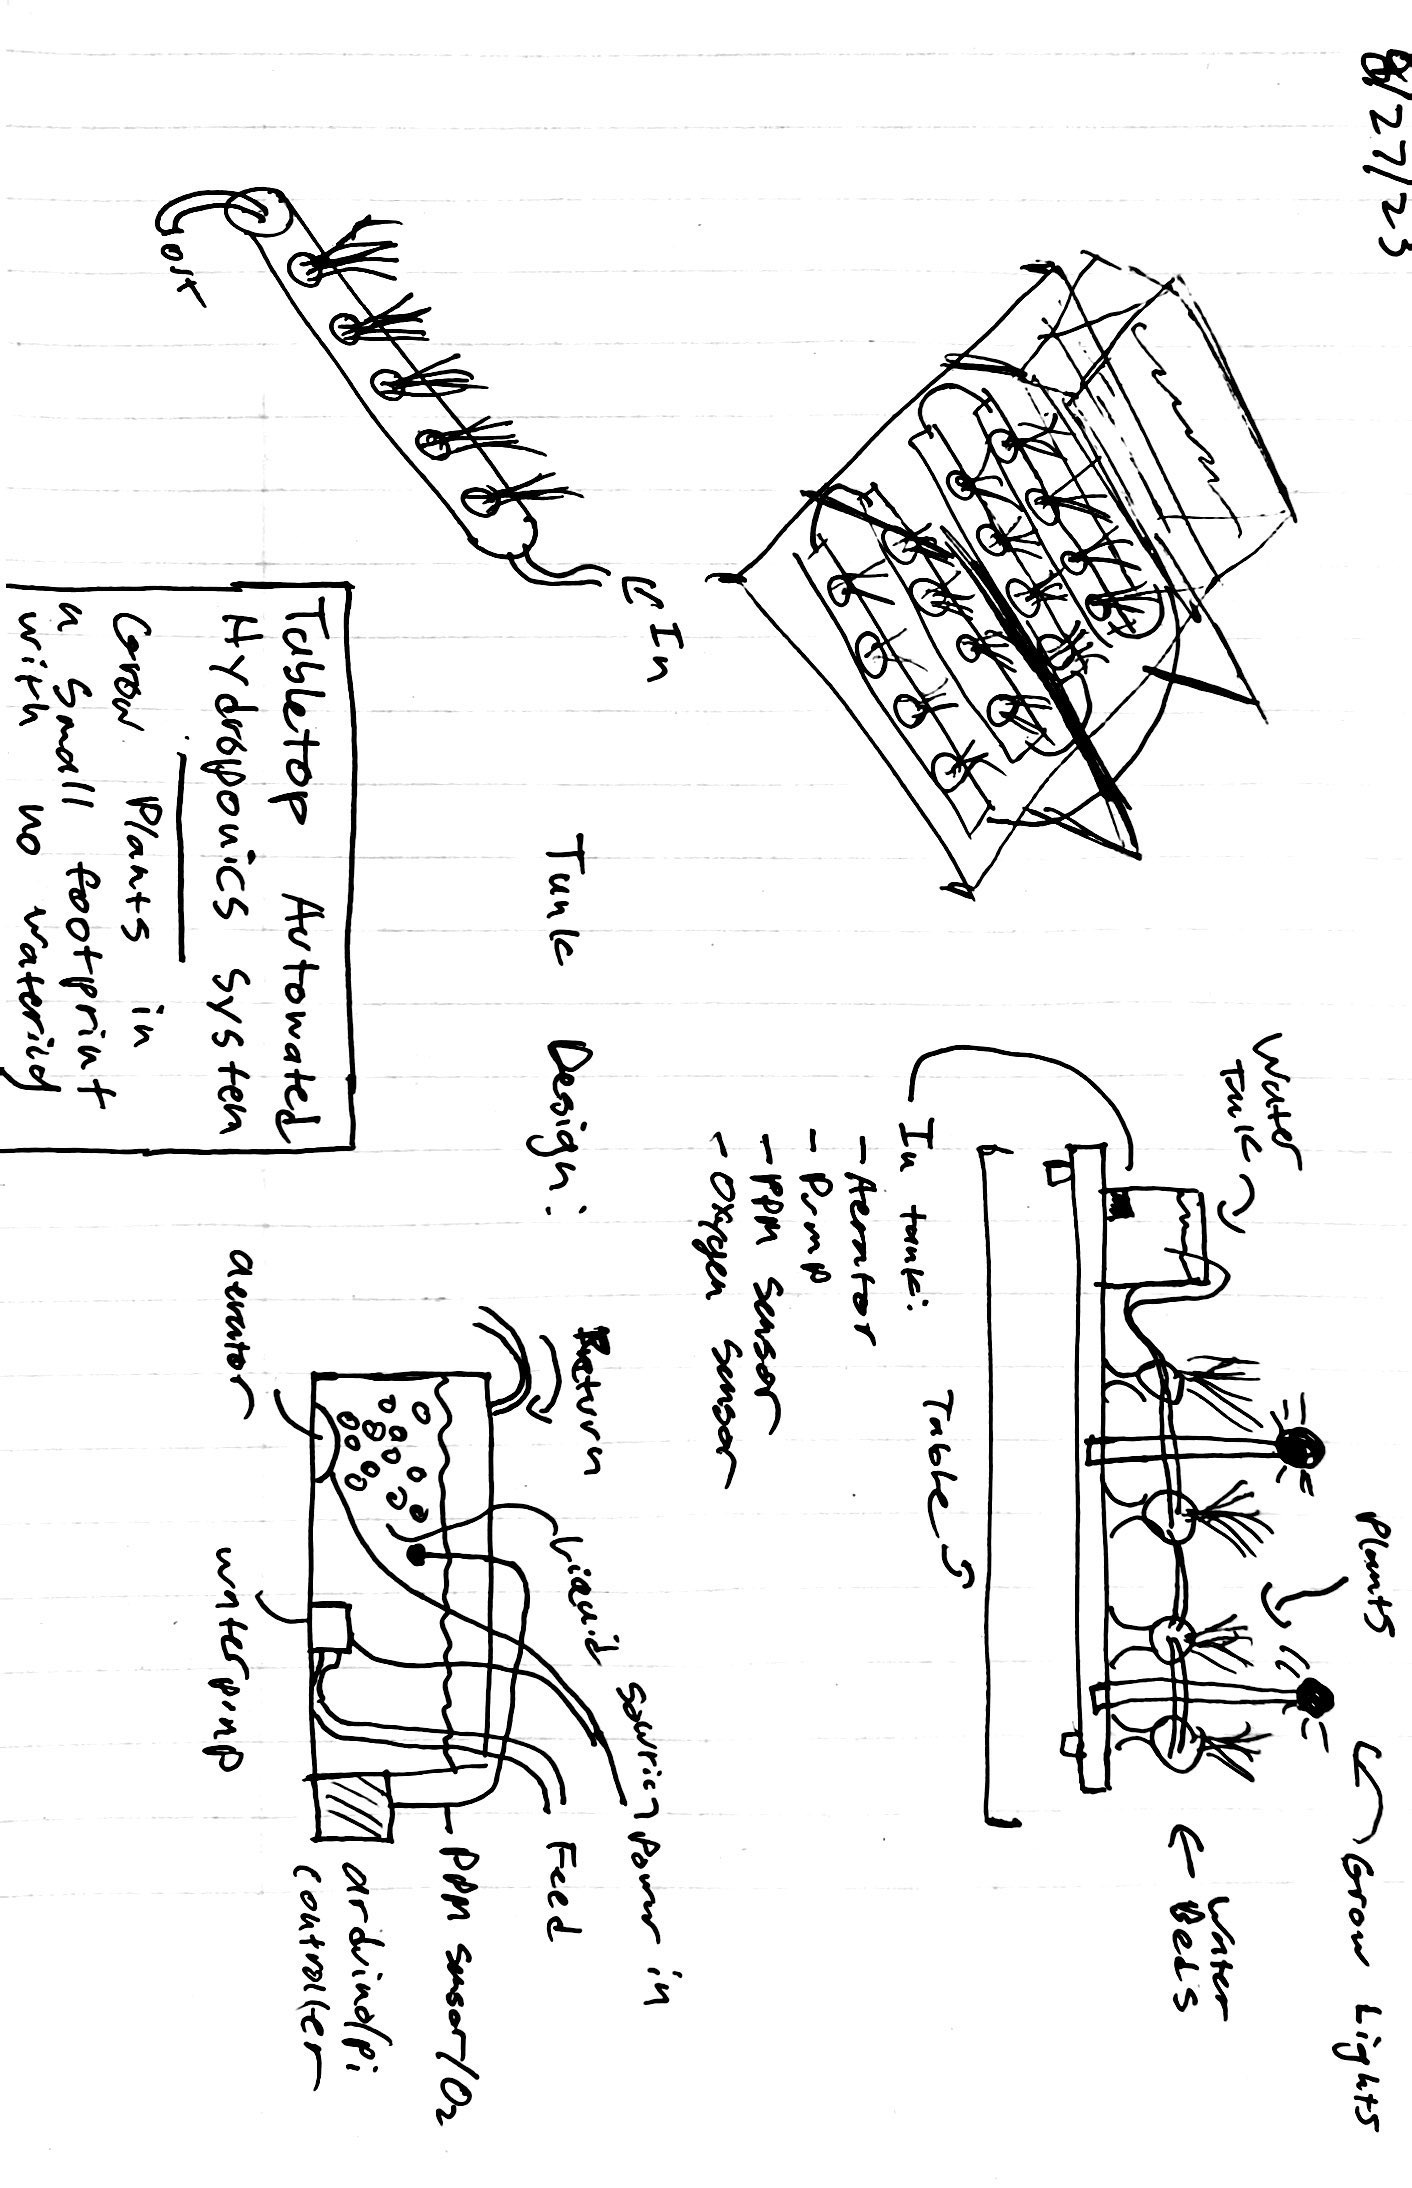 8/27/23
Plants
Grow Lights
Water
Tank
Water
Beds
Table
In tank:
- Aerator
- Pump
- PPM sensor
- Oxygen sensor
In
out
Tank Design:
Return
Liquid
Power in
Feed
PPM sensor/O2
arduino/pi
controller
aerator
water pump
Tabletop Automated
Hydroponics System
Grow Plants in
a Small footprint
with no watering